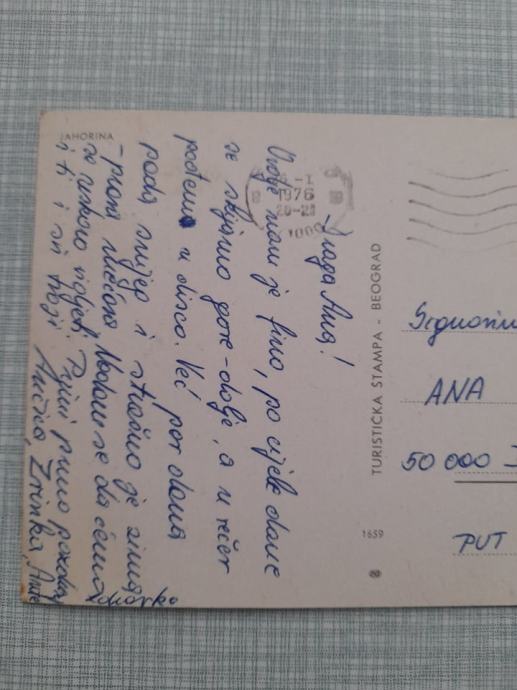 JAHORINA
Draga Ana!
Ovdje nam je fino, po cijele dane
se skijamo gore-dolje, a u večer
plešemo u disco. Već par dana
pada snijeg i strašno je zima
-prava sniježna. Nadam se da ćemo
se uskoro vidjeti. Primi puno pozdrava
i ti i svi tvoji.
Ančica, Zrinka, Ante
Marko
-I
1976
20-21
TURISTICKA STAMPA - BEOGRAD
1659
ANA
50 000
PUT